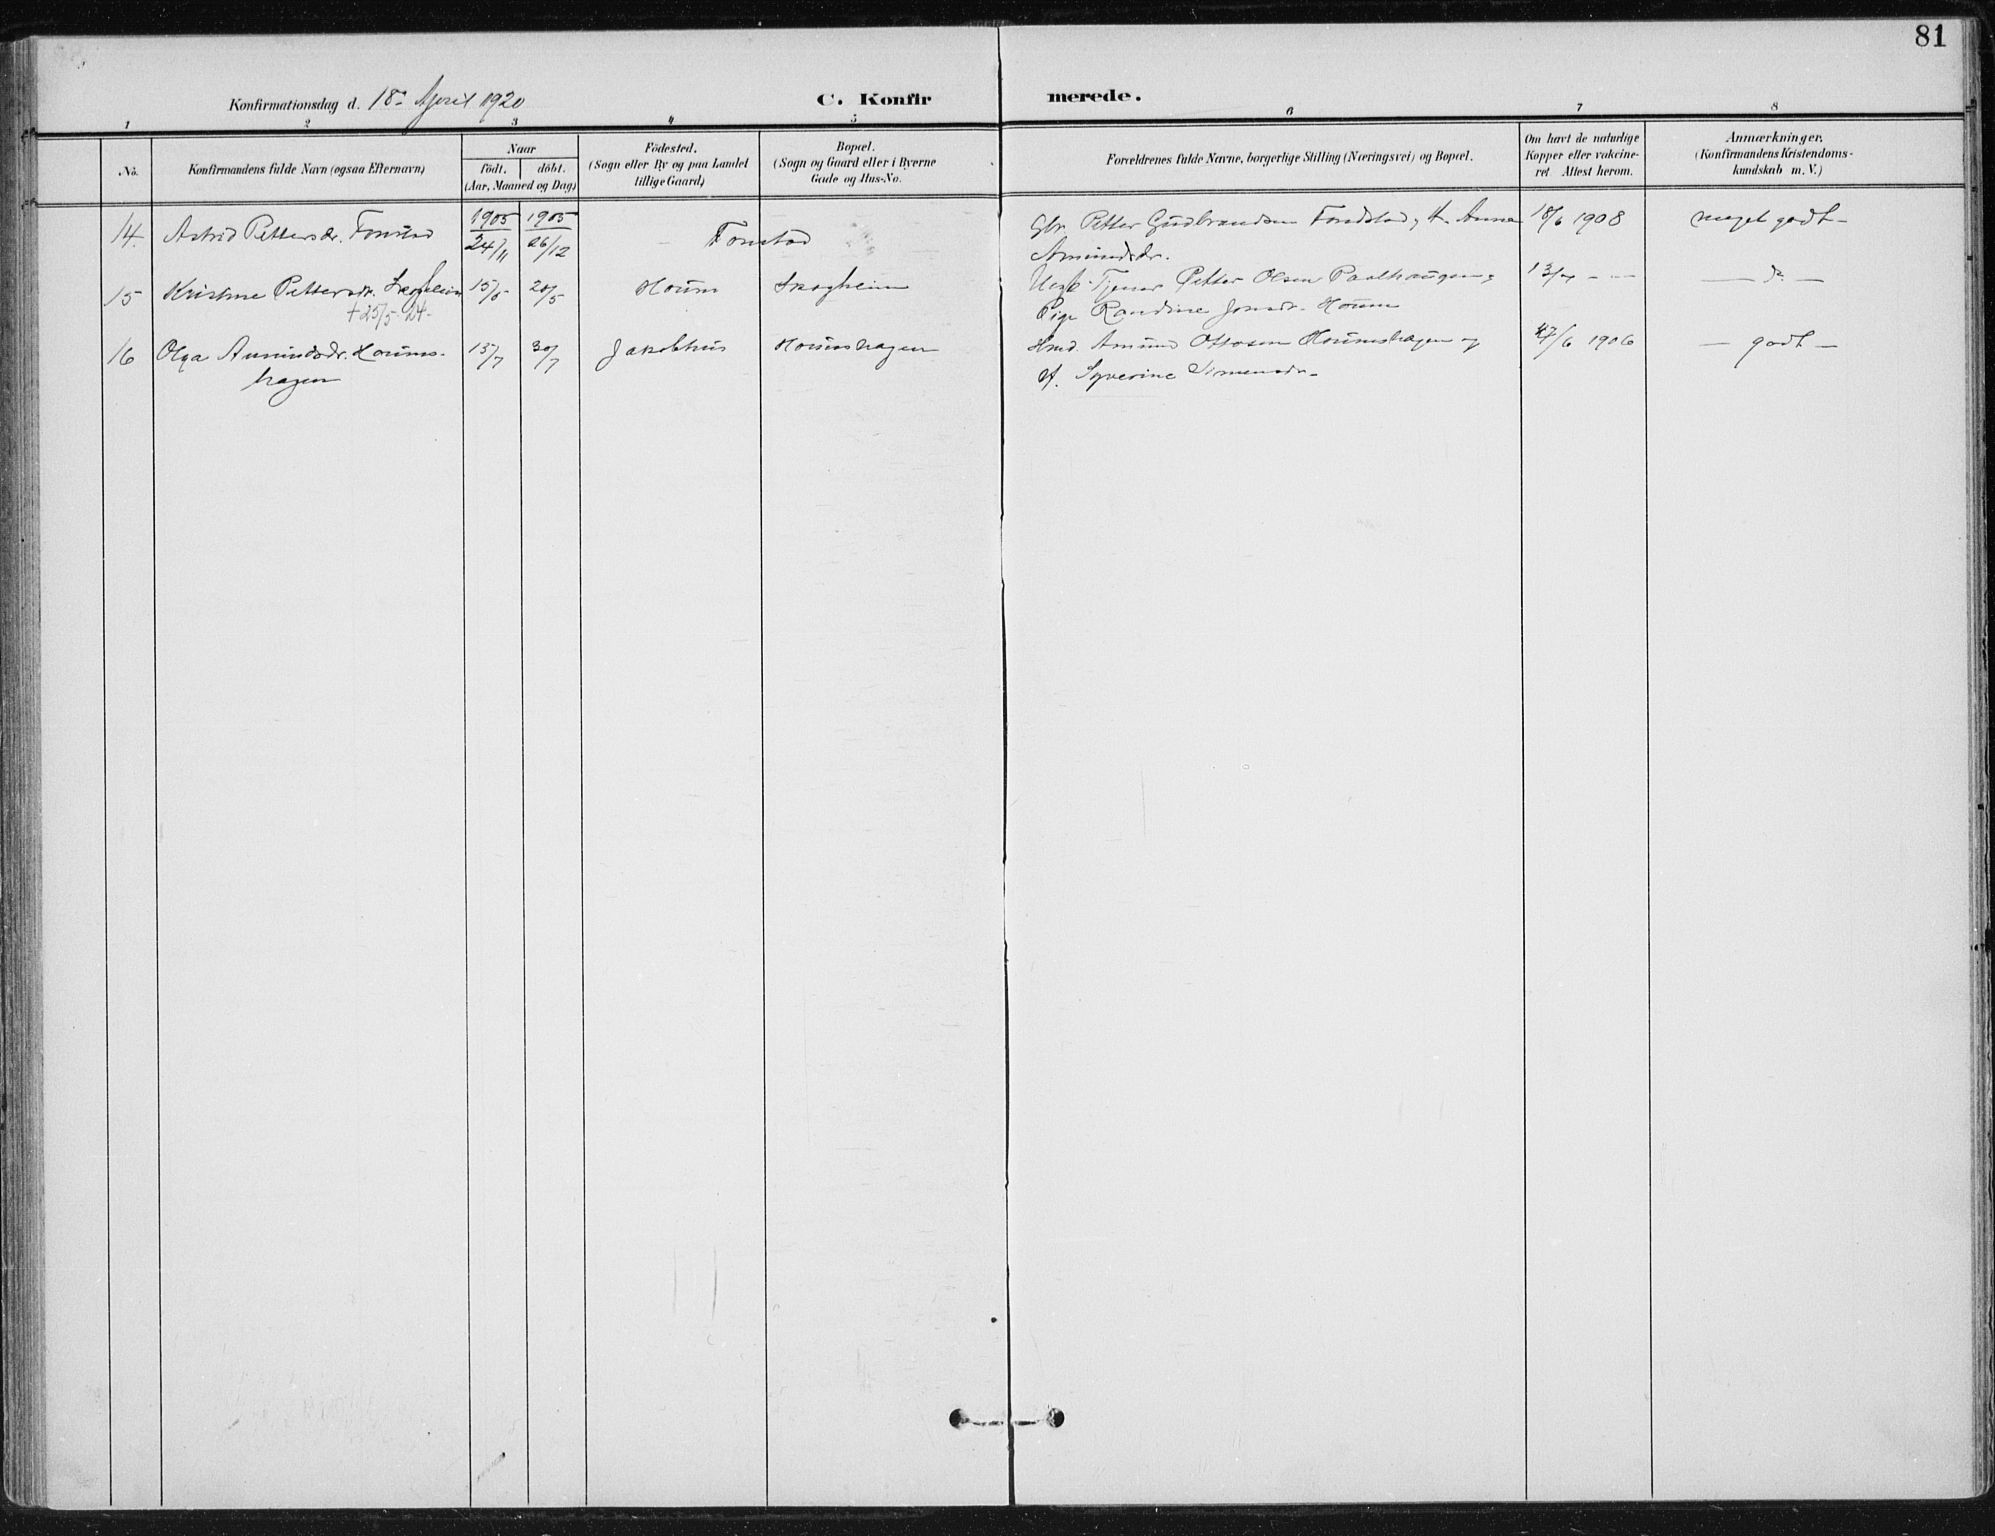 81
Konfirmationsdag d. 18de April 1920
C. Konfirmerede.
1 2 3 4 5 6 7 8
No. Konfirmandens fulde Navn (ogsaa Efternavn)
Naar
födt. döbt.
(Aar, Maaned og Dag)
Födested.
(Sogn eller By og paa Landet
tillige Gaard)
Bopæl.
(Sogn og Gaard eller i Byerne
Gade og Hus-No.
Forældrenes fulde Navne, borgerlige Stilling (Næringsvei) og Bopæl.
Om havt de naturlige
Kopper eller vakcine-
ret. Attest herom.
Anmærkninger.
(Konfirmandens Kristendoms-
kundskab m. V.)
14. Astrid Pettersdr. 1905 24/11 1905 26/12 Fonstad Gbr. Petter Gudbrandsen Fondstad, H. Anne 18/6 1908 meget godt
Amundsdr.
15 Kristine Pettersdr. Skogheim 15/5 20/5 Houm Skogheim Petter Olsen Paalhaugen, 13/7 - - - do -
+ 25/5-24- Pige Randine Jonsdr. Houm
16 Olga Amundsdr. Houms- 13/7 30/7 Jakobhus Houmshagen Hmd. Amund Ottosen Houmshagen og 17/6 1906 - godt -
hagen H. Syverine Simensdr.